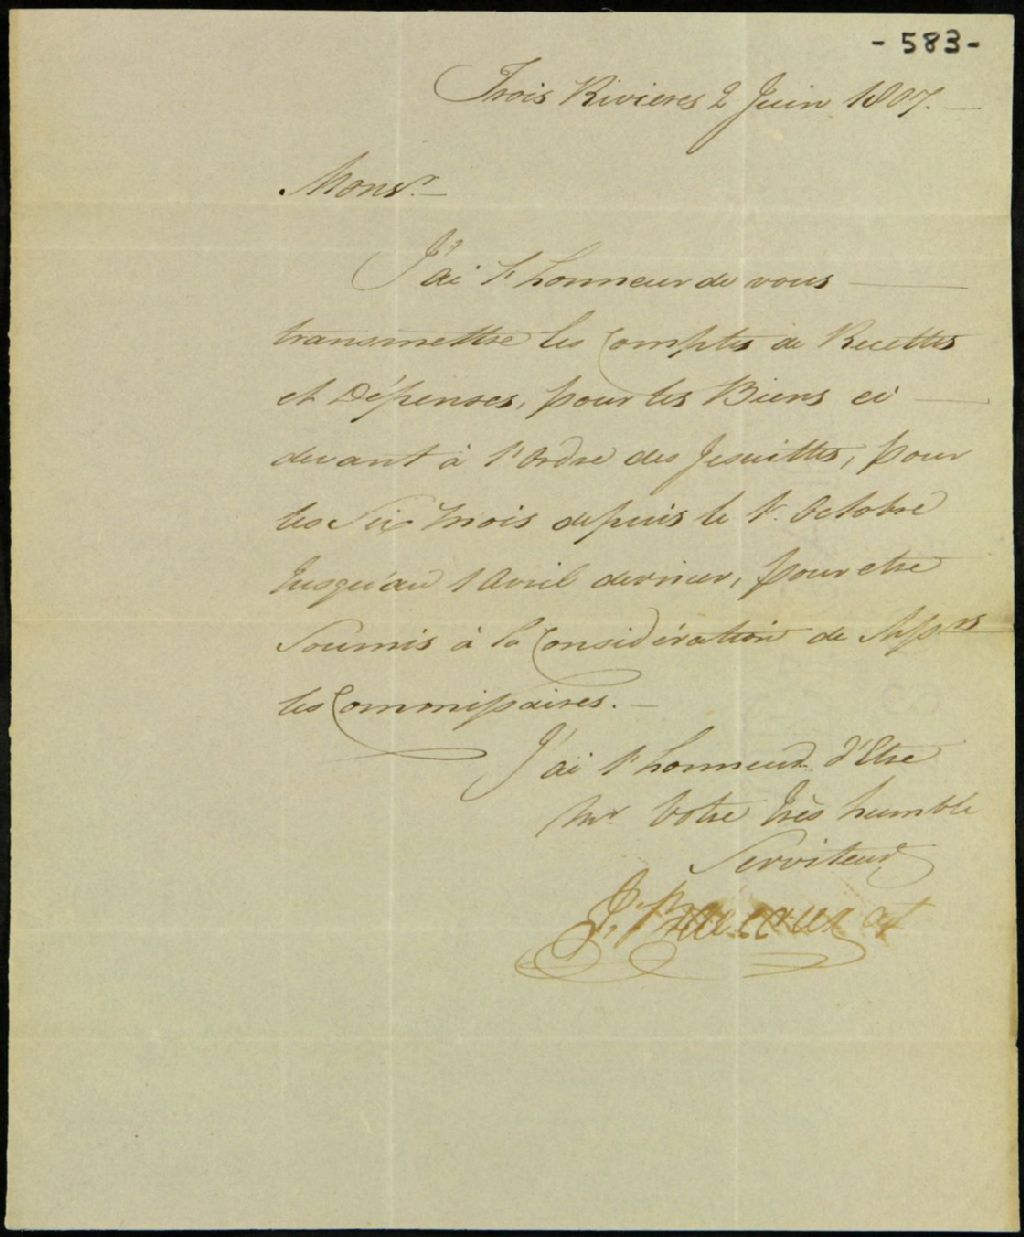 - 583 -
Trois Rivieres 2 Juin 1807.
Monsr.
J'ai l'honneur de vous
transmettre les Comptes de Recettes
et Dépenses, pour les Biens ci
devant à l'Ordre des Jesuittes, pour
les Six Mois depuis le 1r. Octobre
Jusqu'au 1 Avril dernier, pour etre
Soumis à la Considération de Messrs
les Commissaires.
J'ai l'honneur d'Etre
Mr Votre très humble
Serviteur
J. Badeaux